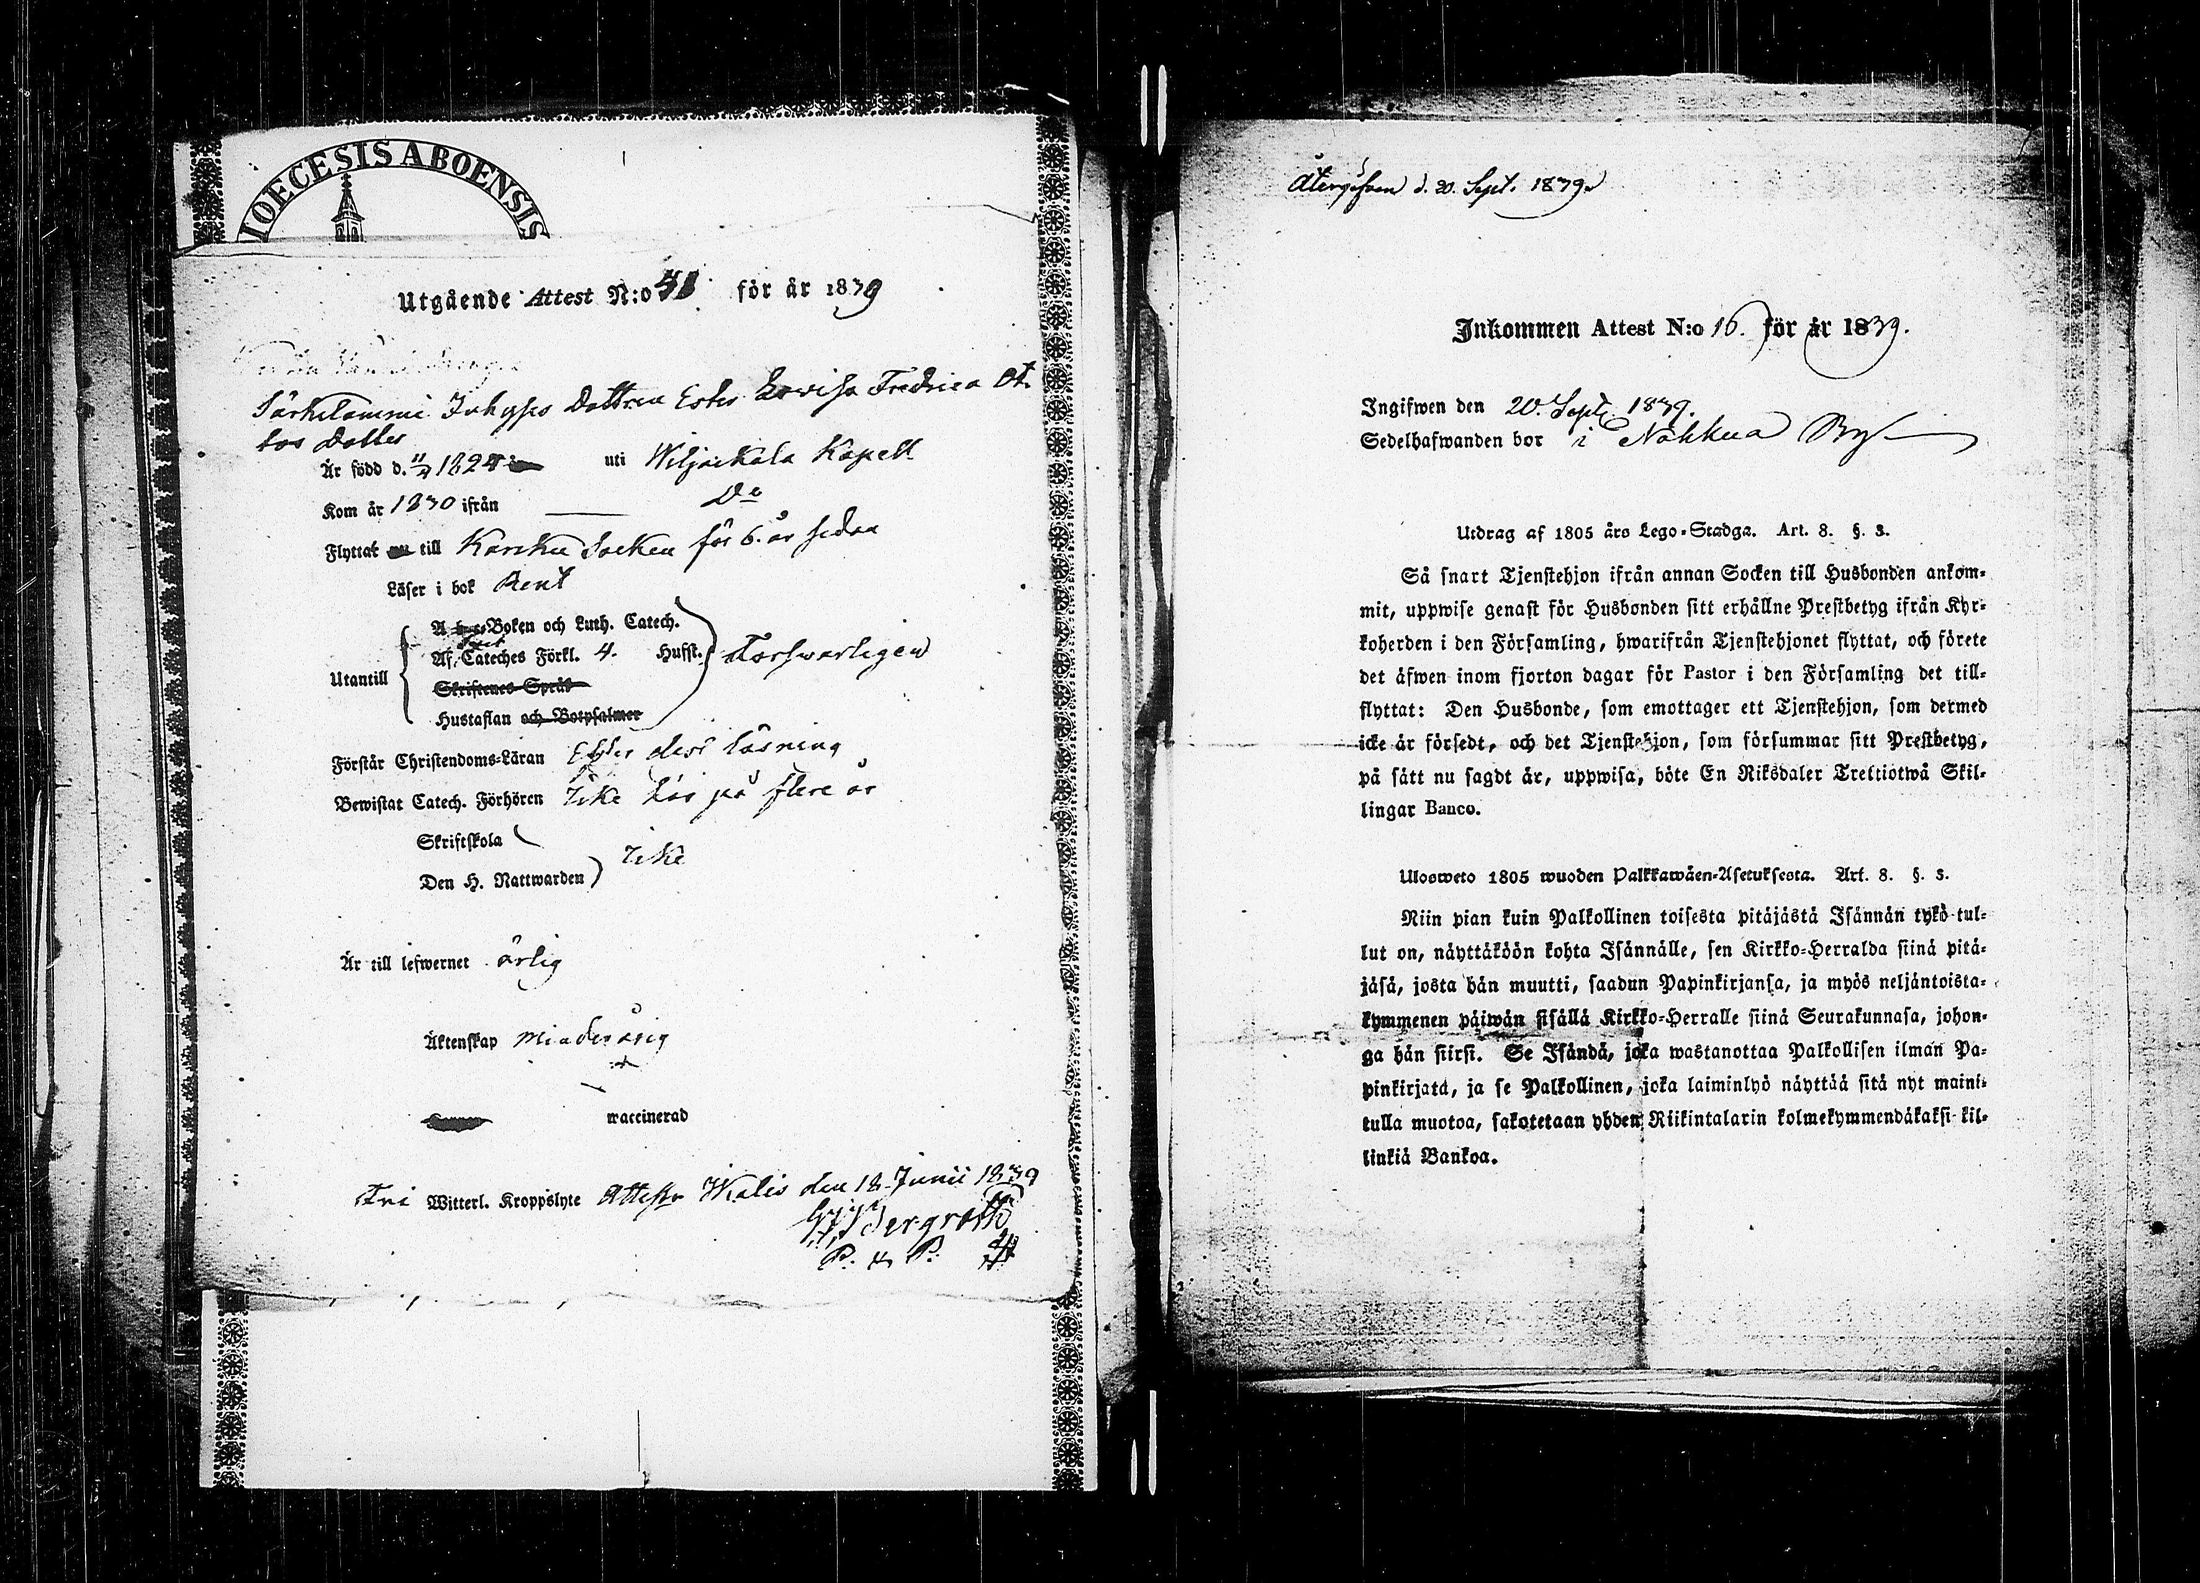 IOECESIS ABOENSIS
Utgående Attest N:o 41 för år 1839
Särkilammi Inhyses Dottren Ester Lovisa Fredrica Ot-
tos Dotter
Är född d. 1824 uti Wiljakkala Kapell
Kom år 1830 ifrån Do
Flyttat till Karkku Socken för 6. år sedan
Läser i bok Rent
A b c Boken och Luth. Catech.
Af Cateches Förkl. 4. Hufst. Försvarligen
Utantill
Skriftenes Språk
Hustaflan och Botpsalmer
Förstår Christendoms-Läran Efter dess läsning
Bewistat Catech. Förhören Icke här på flere år
Skriftskola
Icke
Den H. Nattwarden
Är till lefwernet ärlig
Äktenskap minderårig
waccinerad
Fri Witterl. Kroppslyte Attester den 18 Junii 1839
Bergroth
Återgifven d. 20. Sept. 1839.
Inkommen Attest N:o 16. för år 1839.
Ingifwen den 20. Sept. 1839.
Sedelhafwanden bor i Nohkua By
Utdrag af 1805 års Lego-Stadga. Art. 8. §. 3.
Så snart Tjenstehjon ifrån annan Socken till Husbonden ankom-
mit, uppwise genast för Husbonden sitt erhållne Prestbetyg ifrån Kyr-
koherden i den Församling, hwarifrån Tjenstehjonet flyttat, och förete
det äfwen inom fjorton dagar för Pastor i den Församling det till-
flyttat: Den Husbonde, som emottager ett Tjenstehjon, som dermed
icke är försedt, och det Tjenstehjon, som försummar sitt Prestbetyg,
på sätt nu sagdt är, uppwisa, böte En Riksdaler Trettiotwå Skil-
lingar Banco.
Ulosweto 1805 wuoden Palkkawäen-Asetuksesta. Art. 8. §. 3.
Niin pian kuin Palkollinen toisesta pitäjästä Isännän tykö tul-
lut on, näyttäköön kohta Isännälle, sen Kirkko-Herralda siinä pitä-
jäsä, josta hän muutti, saadun Papinkirjansa, ja myös neljäntoista-
kymmenen päiwän sisällä Kirkko-Herralle siinä Seurakunnasa, johon-
ga hän siirsi. Se Isändä, joka wastanottaa Palkollisen ilman Pa-
pinkirjatä, ja se Palkollinen, joka laiminlyö näyttää sitä nyt maini-
tulla muotoa, sakotetaan yhden Riikintalarin kolmekymmendäkaksi kil-
linkiä Bankoa.